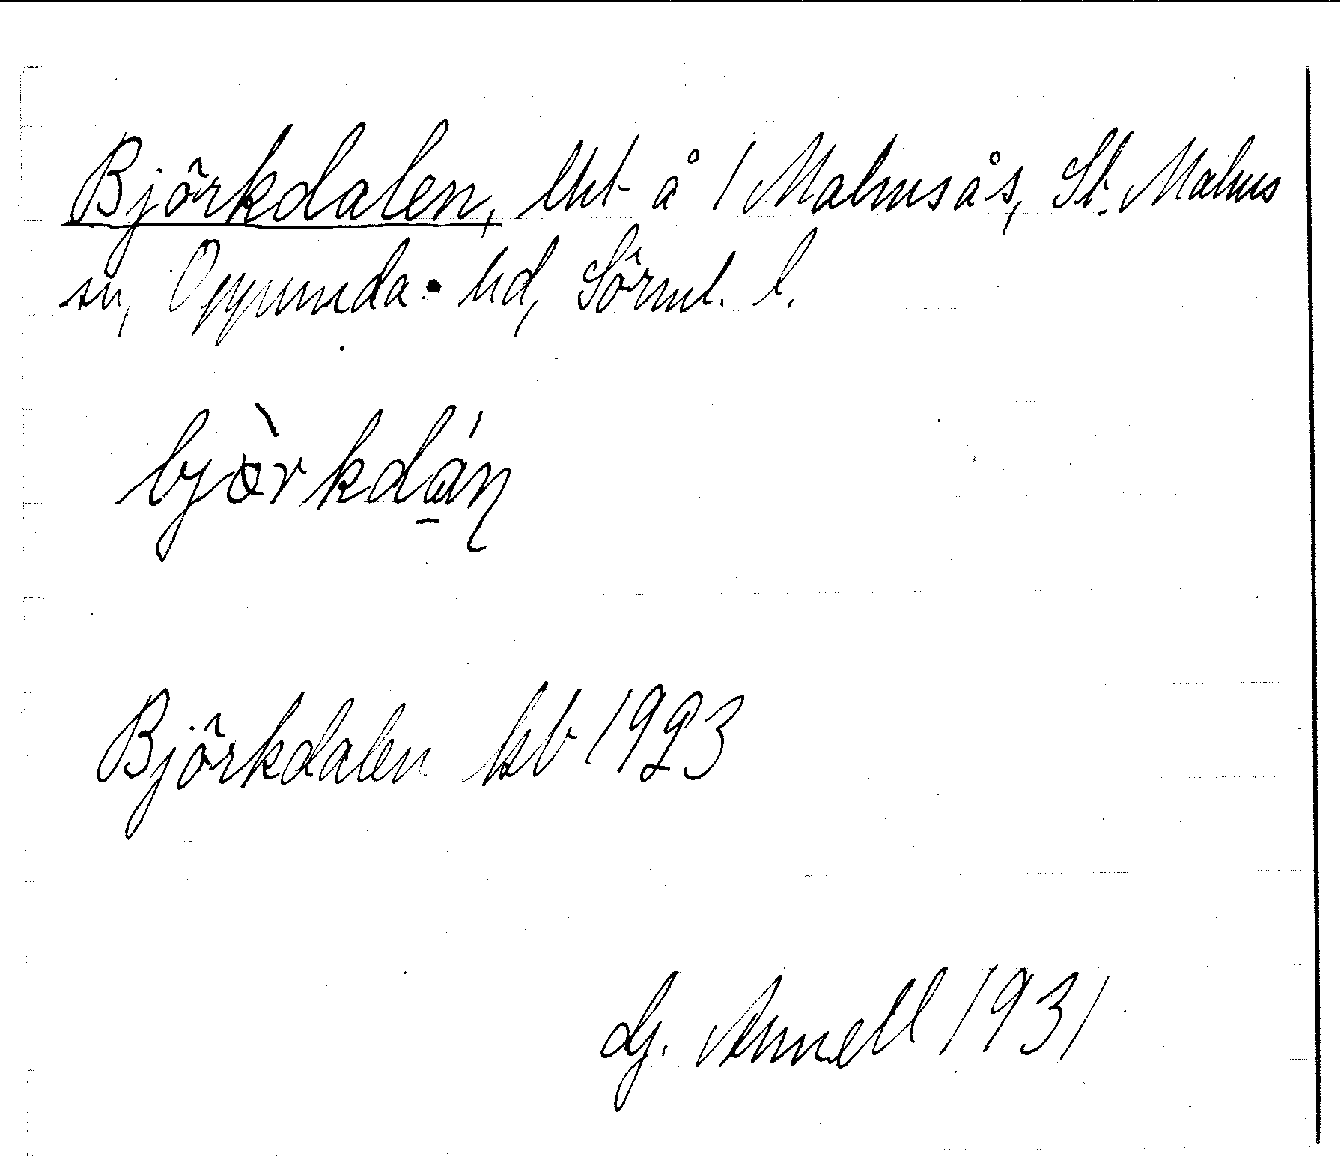 Björkdalen, lht å 1 Malmsås, St. Malms
sn, Oppunda hd, Sörml. l.
björkdán
Björkdalen kb 1923
G. Annell 1931